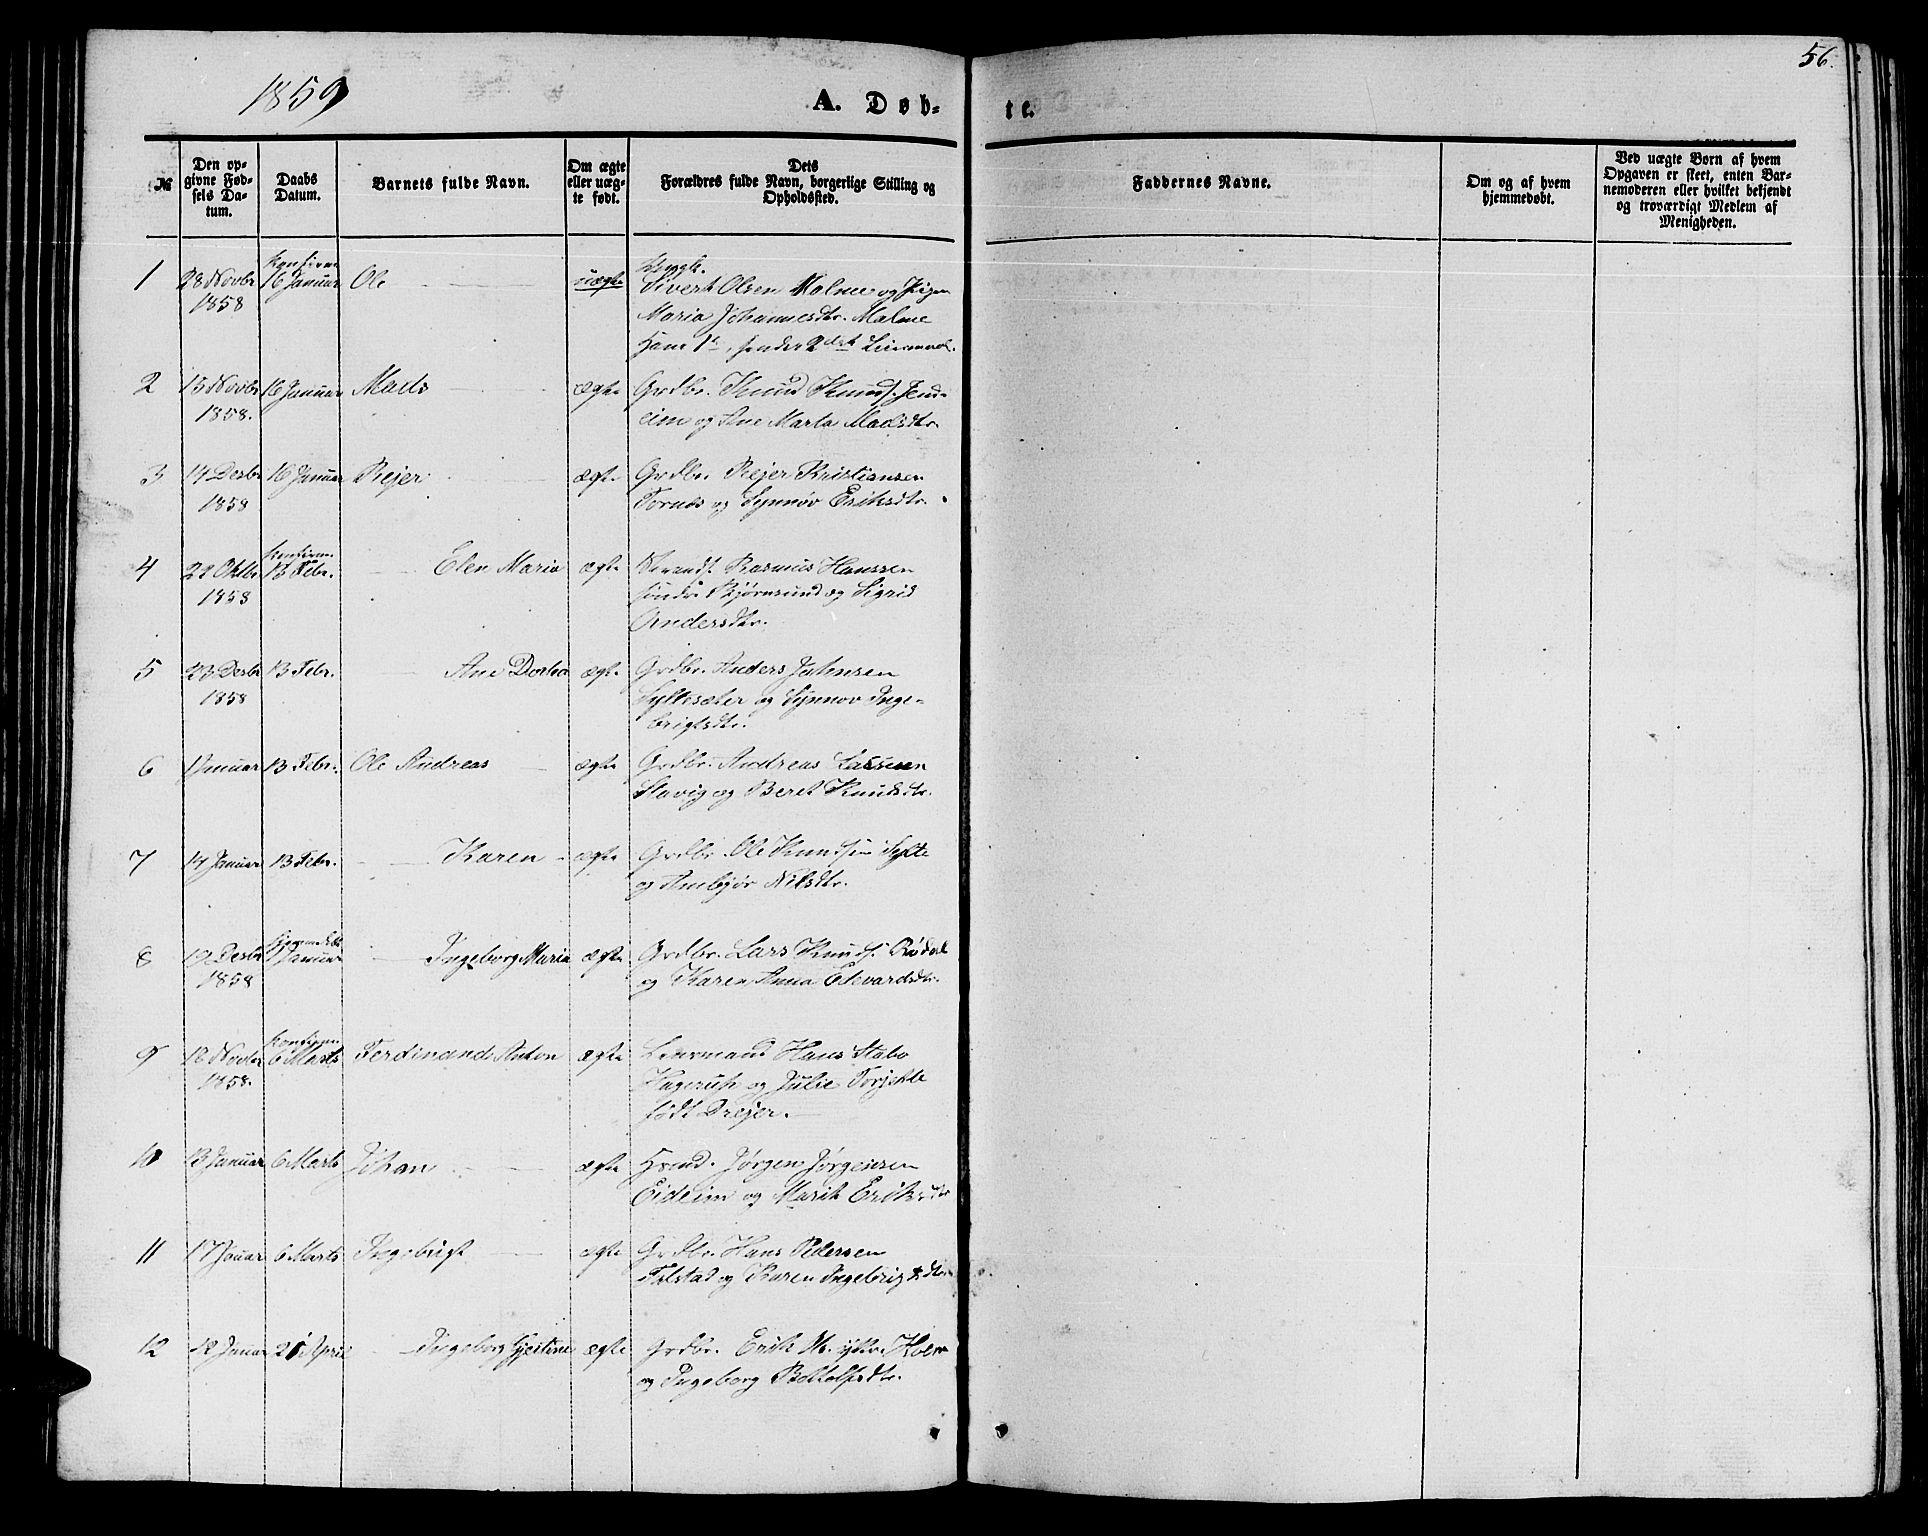 56.
1859
A. Døb-
te.
№
Den op-
givne Fød-
sels Da-
tum.
Daabs
Datum.
Barnets fulde Navn.
Om ægte
eller uæg-
te født.
Dets
Forældres fulde Navn, borgerlige Stilling og
Opholdssted.
Faddernes Navne.
Om og af hvem
hjemmedøbt.
Ved uægte Børn af hvem
Opgaven er skeet, enten Bar-
nemoderen eller hvilket bekjendt
og troværdigt Medlem af
Menigheden.
1 28 Novbr 16 Januar Ole uægte
1858
Sivert Olsen Malme og Pigen
Maria Johannesdtr. Malme
Hans 1ste, hendes 2det Leiermaal.
2 15 Novbr 16 Januar Mads ægte Grdbr. Knud Knuds. Jend-
1858. eim og Ane Marta Madsdtr.
3 14 Desbr 16 Januar Rejer ægte Grdbr. Rejer Kristiansen
1858 Tornes og Synnøv Eriksdtr.
4 29 Oktbr 13 Febr. Elen Maria ægte Strands. Rasmus Hanssen
1858 søndr. Bjørnsund og Sigrid
Andersdtr.
5 23 Desbr 13 Febr. Ane Dorta ægte Grdbr. Anders Johnsen
1858 Syltesæter og Synnøv Inge-
brigtsdtr.
6 1 Januar 13 Febr. Ole Andreas ægte Grdbr. Andreas Lassen
Stavig og Beret Knudsdtr.
7 14 Januar 13 Febr. Karen ægte Grdbr. Ole Knudsen Sylte
og Ambjør Nilsdtr.
8 19 Desbr Januar Ingeborg Maria ægte Grdbr. Lars Knuds. Rødal
1858 og Karen Anna Edevardsdtr.
9 18 Novbr 6 Marts Ferdinand Anton ægte Lensmand Hans Stabo
1858. Hagerup og Julie Torjette
født Drejer.
10 13 Januar 6 Marts Johan ægte Hmd. Jørgen Jørgensen
Eideim og Marit Eriksdtr
11 17 Januar 6 Marts Ingebrigt ægte Grdbr. Hans Pedersen
Tolstad og Karen Ingebrigtsdtr.
12 18 Januar 21 April Ingeborg Gjertine ægte Grdbr. Erik M. Holm
og Ingeborg Bottolfsdtr.